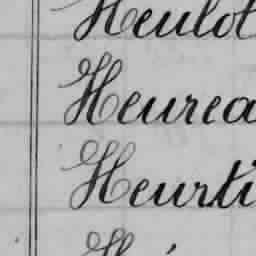 Heulot
Heurea
Heurti